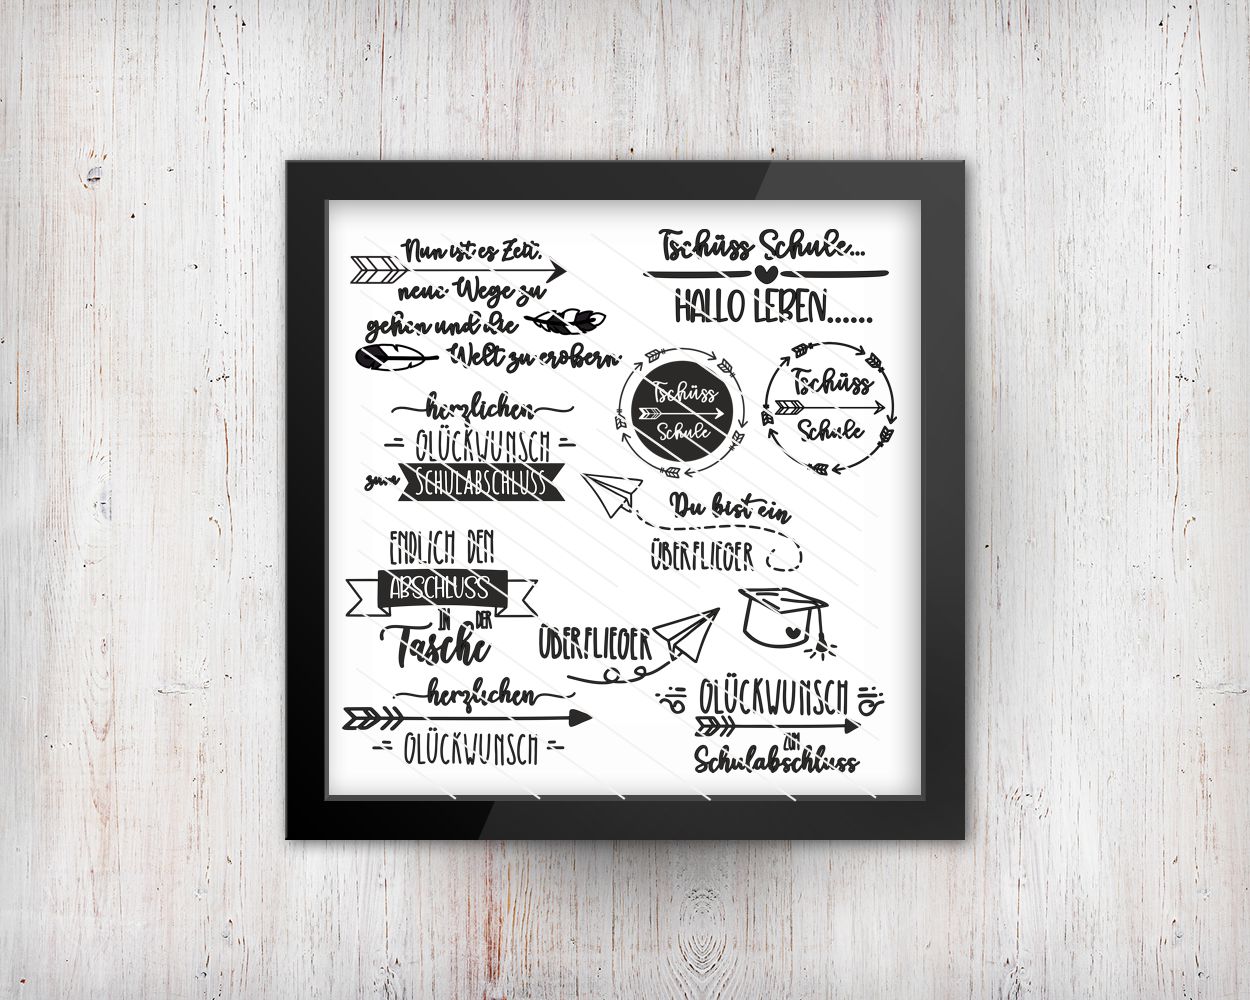 Nun ist es Zeit,
neue Wege zu
gehen und die
Welt zu erobern.
Tschüss Schule...
HALLO LEBEN......
Tschüss
Schule
Tschüss
Schule
herzlichen
GLÜCKWUNSCH
zum SCHULABSCHLUSS
Du bist ein
ÜBERFLIEGER
ENDLICH DEN
ABSCHLUSS
IN DER
Tasche
ÜBERFLIEGER
herzlichen
GLÜCKWUNSCH
GLÜCKWUNSCH
ZUM
Schulabschluss